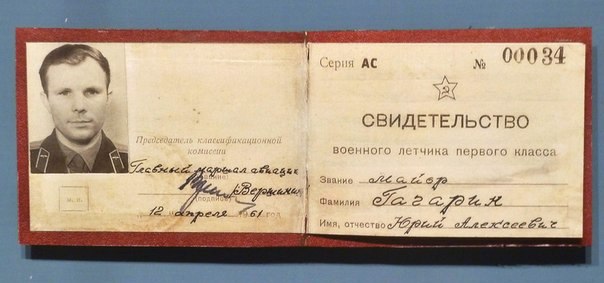 Председатель классификационной
комиссии
Главный маршал авиации
(звание)
Вершинин
(подпись)
12 апреля 1961 год
м. п.
Серия АС № 00034
СВИДЕТЕЛЬСТВО
военного летчика первого класса
Звание майор
Фамилия Гагарин
Имя, отчество Юрий Алексеевич